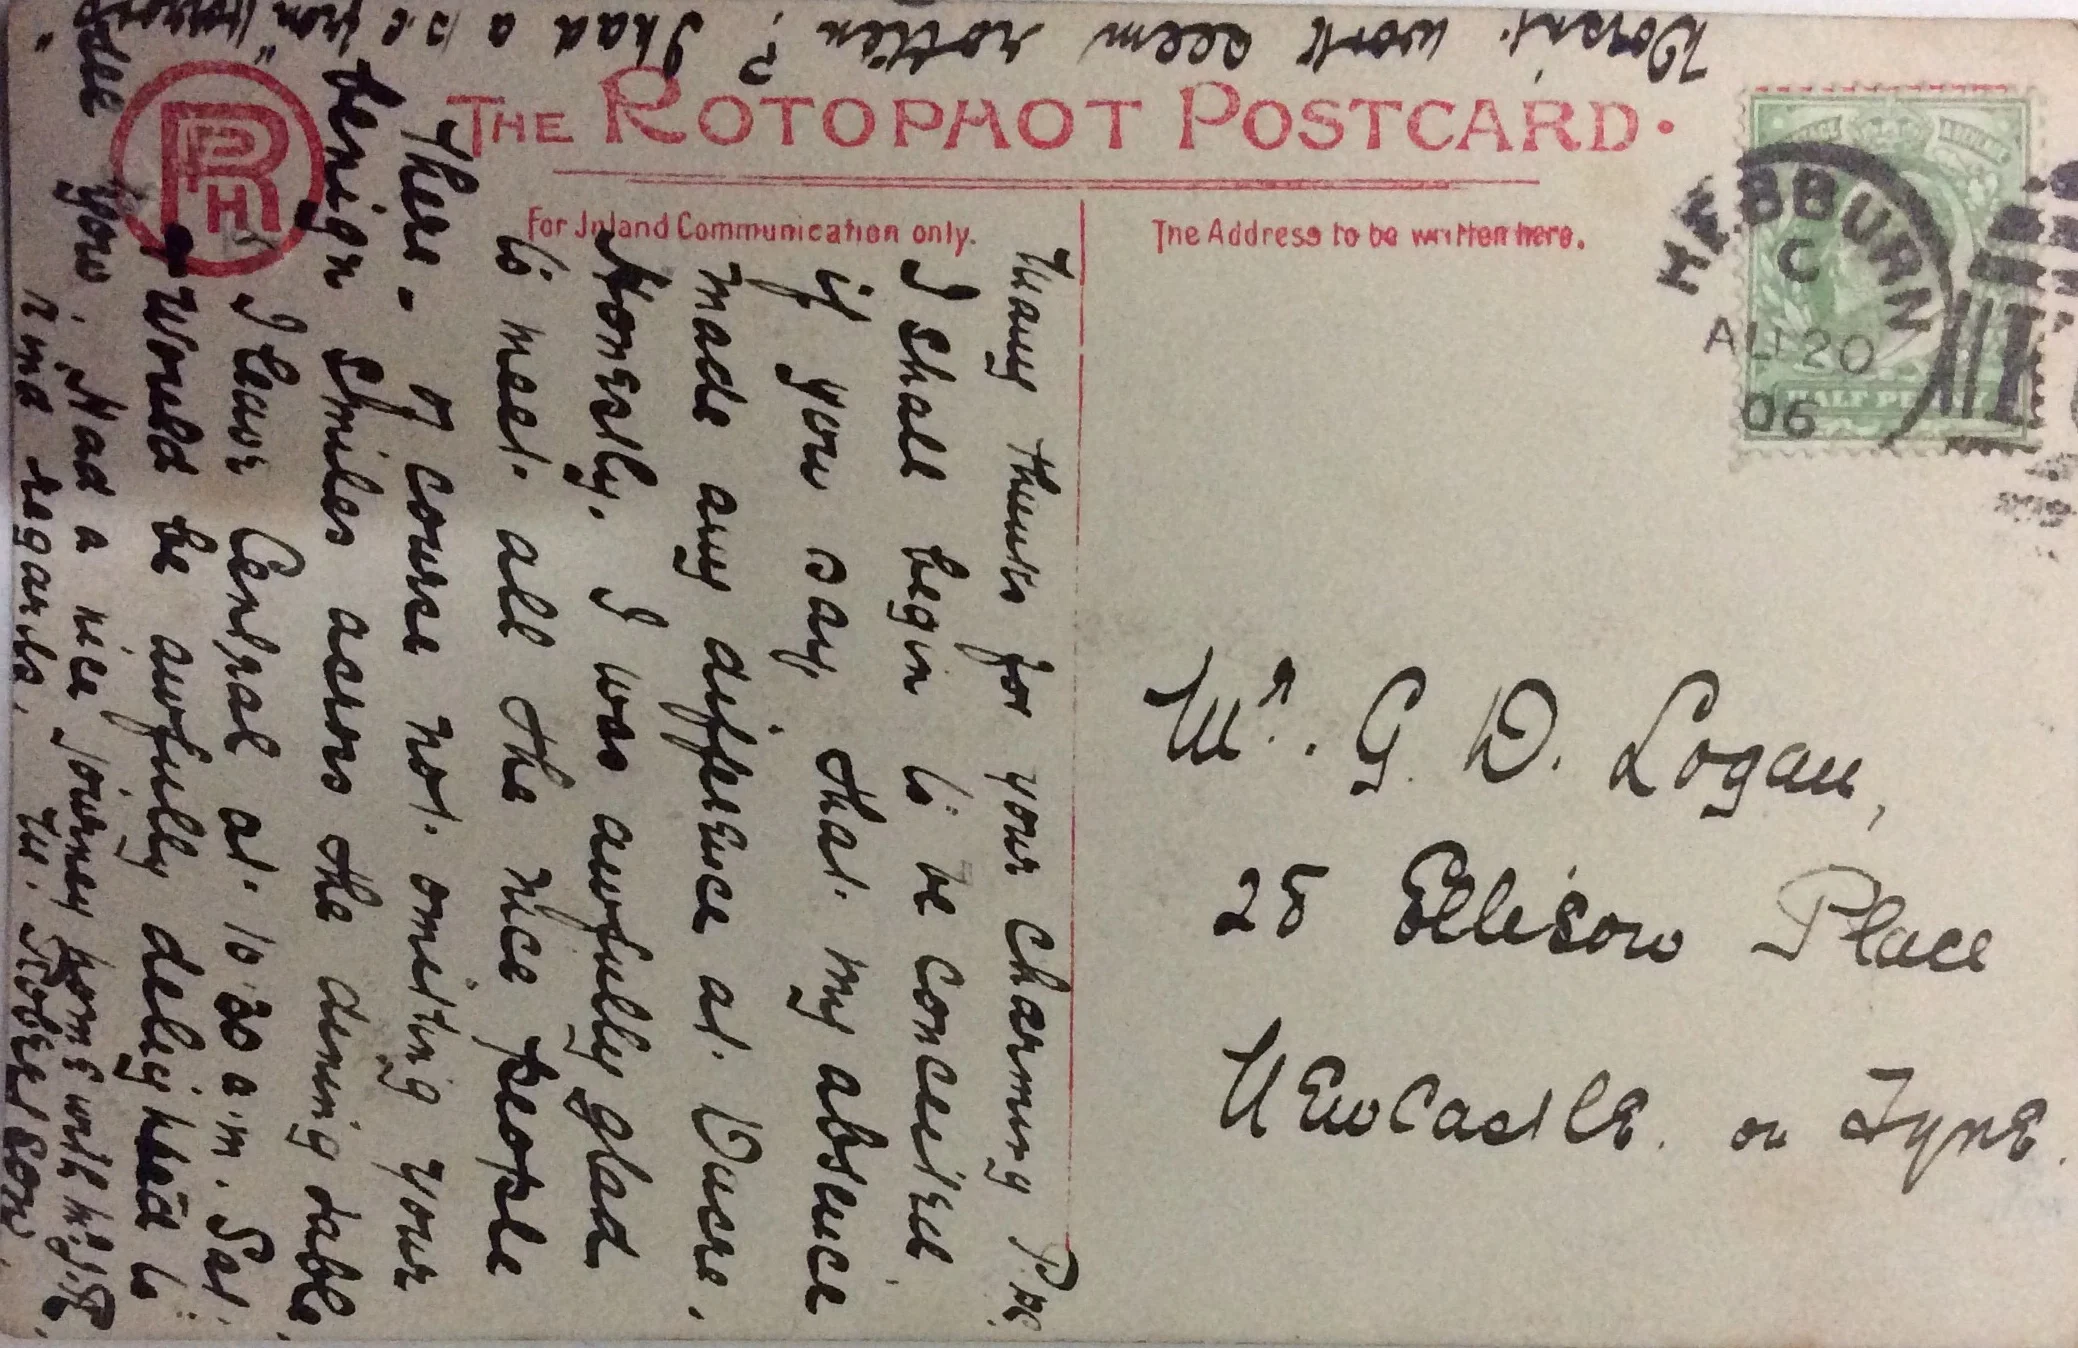 Doesn't work seem rotten? I had a p.c from "
THE ROTOPHOT POSTCARD.
RPH
For Inland Communication only.
The Address to be written here.
HEBBURN
C
AU 20
06
HALF PENNY
Mr. G. D. Logan,
28 Ellison Place
Newcastle. on Tyne.
Many thanks for your charming P.pc
I shall begin to be conceited
if you say that my absence
made any difference at
Honestly, I was awfully glad
to meet all the nice people
there - of course not omitting your
benign smiles across the dining table.
I leave Central at 10.30 a.m. Sat.
& would be awfully delighted to
see you. Had a nice journey home with
Kind regards. M. Robertson.